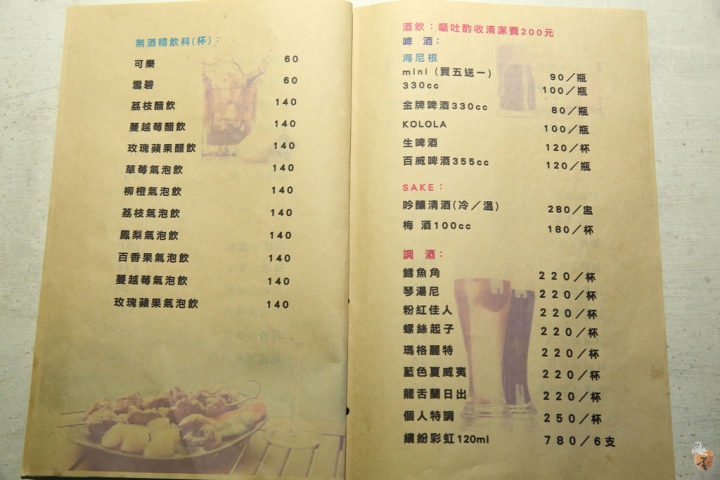 無酒精飲料(杯)：
可樂 60
雪碧 60
荔枝醋飲 140
蔓越莓醋飲 140
玫瑰蘋果醋飲 140
草莓氣泡飲 140
柳橙氣泡飲 140
荔枝氣泡飲 140
鳳梨氣泡飲 140
百香果氣泡飲 140
蔓越莓氣泡飲 140
玫瑰蘋果氣泡飲 140
酒飲：嘔吐酌收清潔費200元
啤 酒：
海尼根
mini (買五送一) 90/瓶
330cc 100/瓶
金牌啤酒330cc 80/瓶
KOLOLA 100/瓶
生啤酒 120/杯
百威啤酒355cc 120/瓶
SAKE：
吟釀清酒(冷/溫) 280/盅
梅 酒100cc 180/杯
調 酒：
鱷魚角 220/杯
琴湯尼 220/杯
粉紅佳人 220/杯
螺絲起子 220/杯
瑪格麗特 220/杯
藍色夏威夷 220/杯
龍舌蘭日出 220/杯
個人特調 250/杯
繽紛彩虹120ml 780/6支